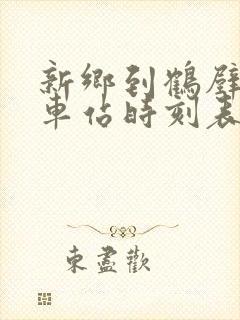 新鄉到鶴壁
車佔時刻表
東盡歡